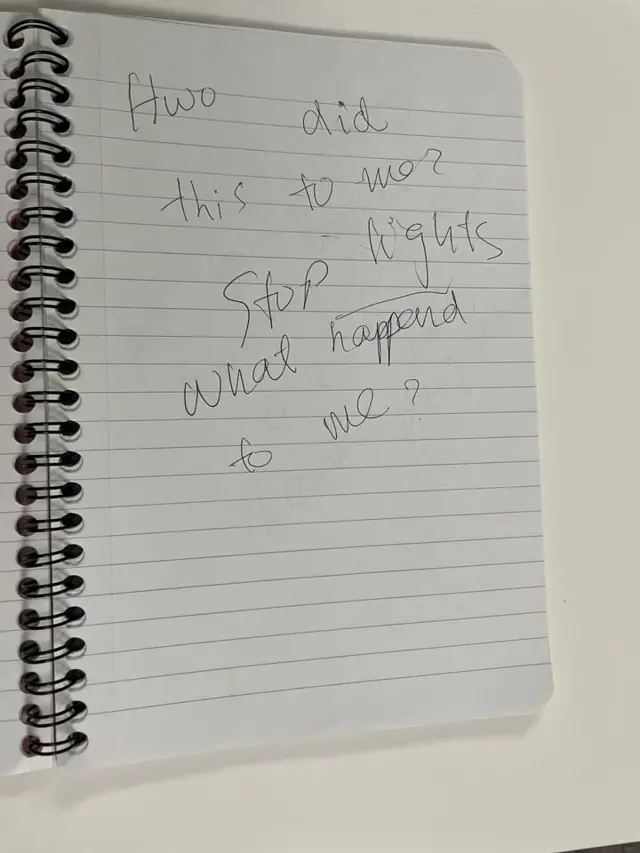 Hwo did
this to me?
lights
Stop
what happend
to me?